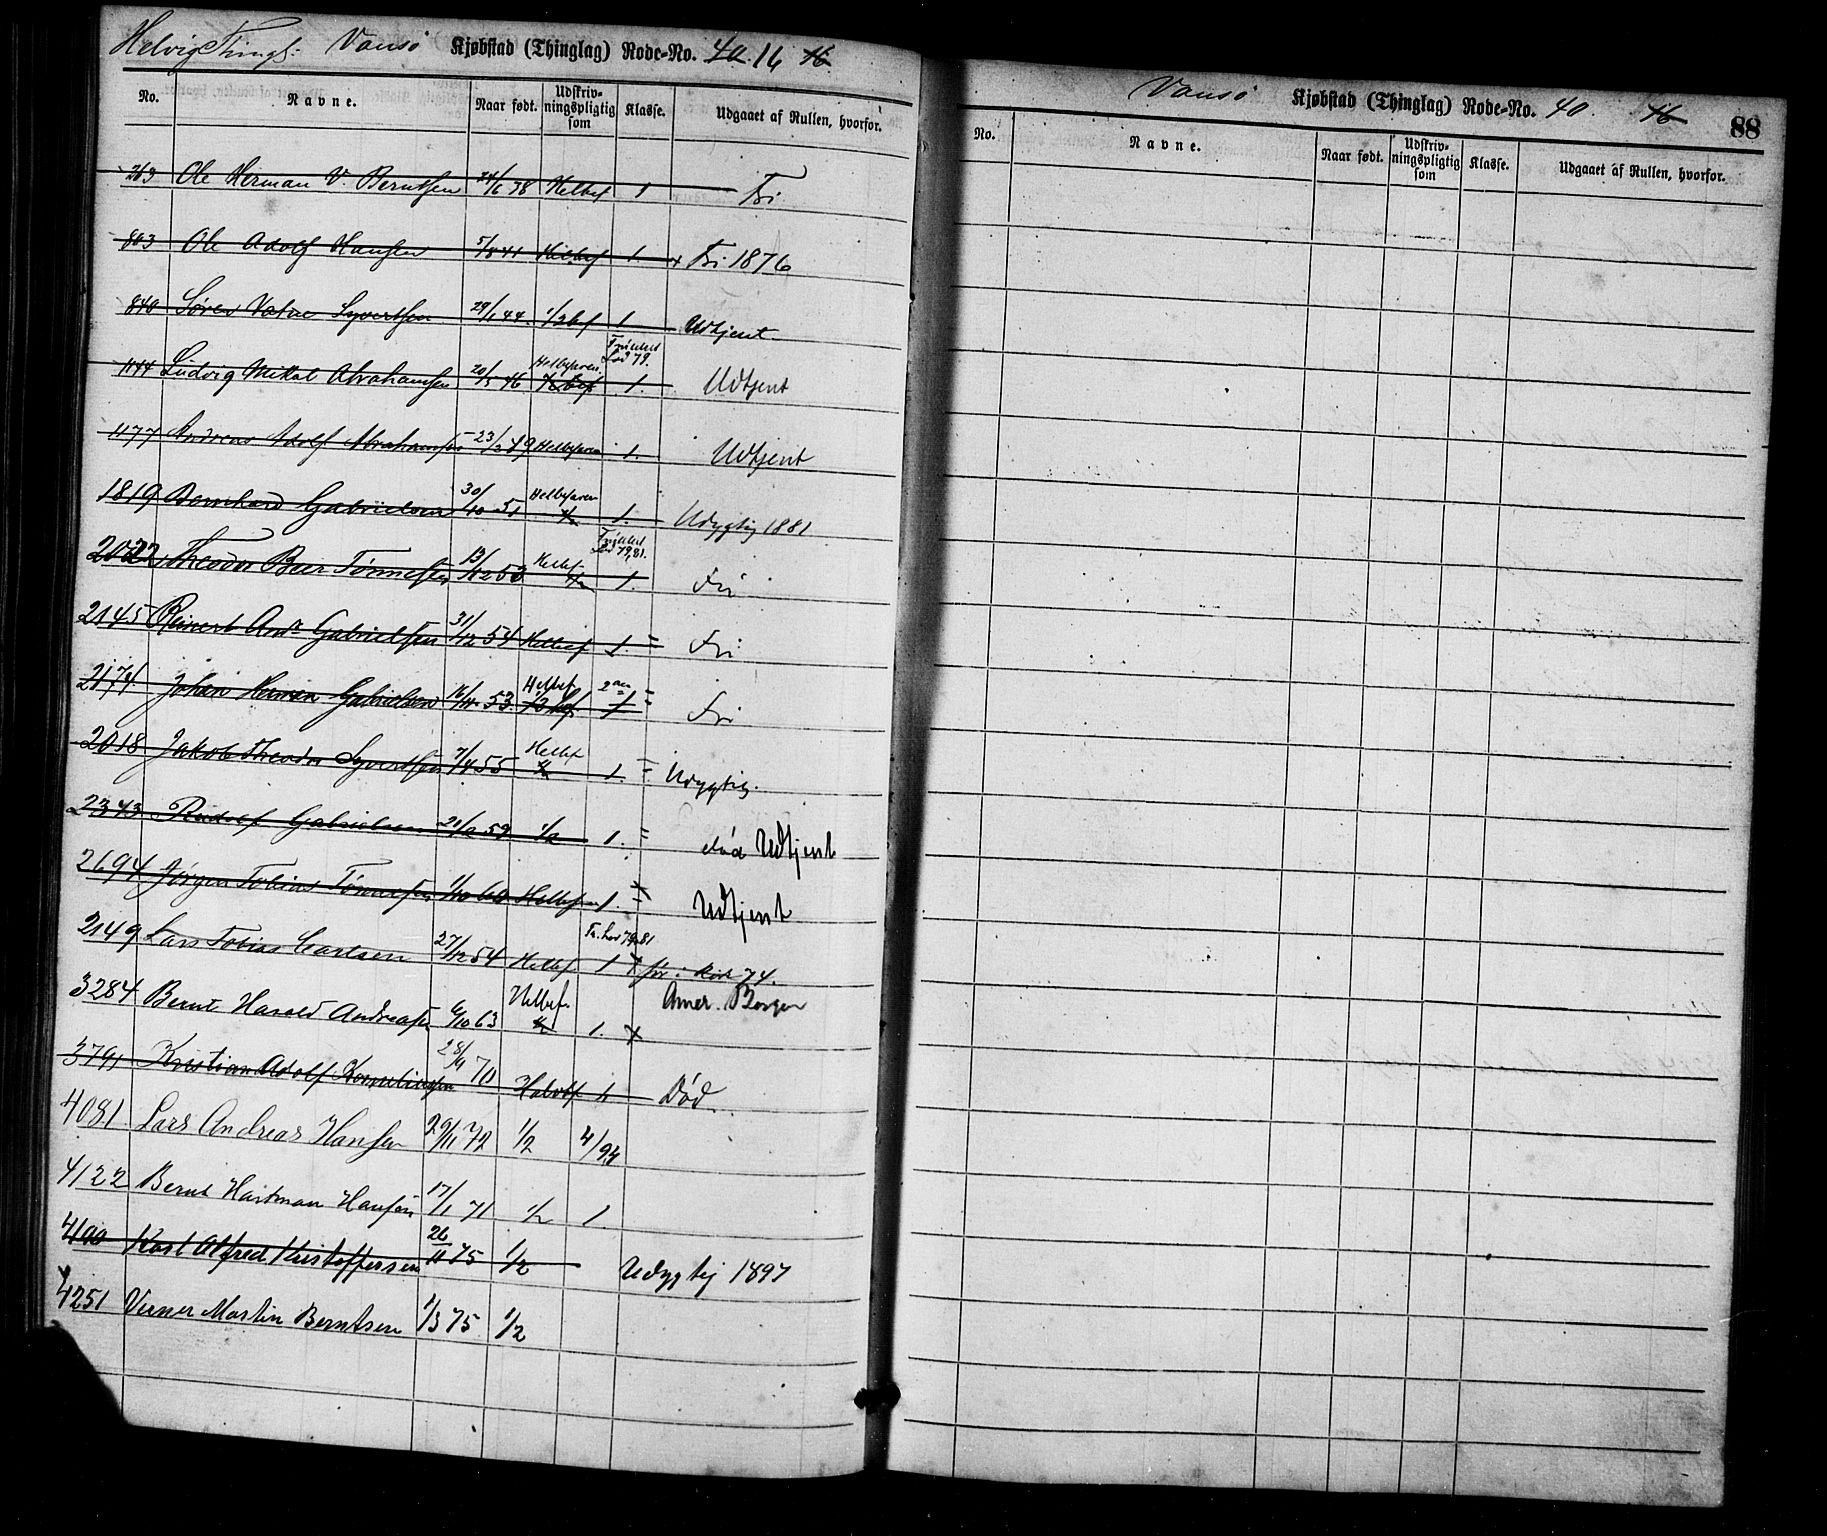 Helvig Thingl: Vansø Kjøbstad (Thinglag) Rode-No. 40. 16 16
No. Navne. Naar født. Udskriv-ningspligtig som Klasse. Udgaaet af Rullen, hvorfor.
263 Ole Herman V. Berntsen 24/6 38 Helbef 1 Fri
803 Ole Adolf Hansen 5/8 41 Helbef 1 x Fri 1876
840 Søren Vatne Syvertsen 29/1 44. 1/2 bef 1 Udtjent
Frilod Lod 79.
1144 Ludvig Mikal Abrahamsen 20/5 46 Helbefaren 1/2 bef 1. Udtjent
1177 Andreas Adolf Abrahamsen 23/2 49 Helbefaren 1. Udtjent
1819 Bernhard Gabrielsen 30/10 51 Helbefaren 1/2 1. Udygtig 1881
Lod 79, 81.
2022 Theodor Beer Tønnessen 13/12 53 Helbef 1/2 1. Fri
2145 Reinert Andr Gabrielsen 31/12 54 Helbef 1 = Fri
2174 Johan Herman Gabrielsen 16/11 53. Helbef 1/2 bef. 2den 1 = Fri
2018 Jakob Theodor Syvertsen 7/4 55 Helbef 1/2 1. = Udygtig.
2343 Rudolf Gabrielsen 21/2 59 1/2 1. = død Udtjent
2694 Jørgen Tobias Tønnessen 1/10 60 Helbefaren 1. = Udtjent
Fr. Lod 79.81
2149 Lars Tobias Carlsen 27/12 54 Helbef 1 x 74.
3284 Bernt Harald Andreasen 6/10 63 Helbef. 1/2 1. x Amer. Borger
3791 Kristian Adolf Korneliussen 28/9 70 Halvbf 1 Død.
4081 Lars Andreas Hansen 29/11 72 1/2 4/94
4122 Bernt Hartman Hansen 17/1 71 1/2 1.
4190 Karl Alfred Kristoffersen 26/11 75 1/2 Udygtig 1897
4251 Verner Martin Berntsen 1/3 75 1/2
Vansø Kjøbstad (Thinglag) Rode-No. 40. 16 88
No. Navne. Naar født. Udskriv-ningspligtig som Klasse. Udgaaet af Rullen, hvorfor.